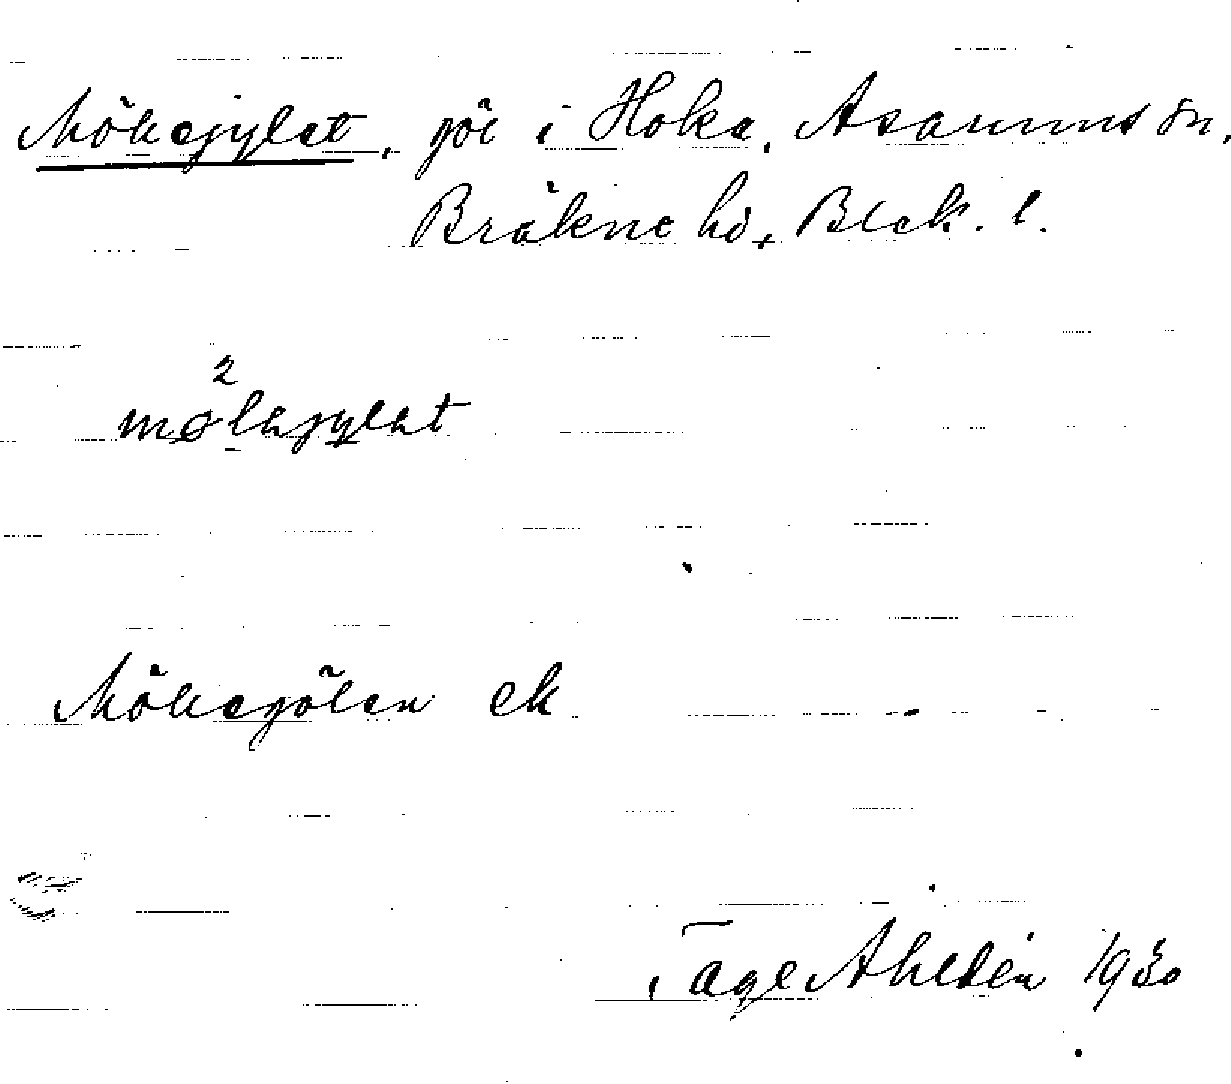 Mökagylet, göl i Hoka, Asarums sn,
Bräkne hd, Blek. l.
2
mølkagylet
Mökegölen ek
Tage Ahldén 1930